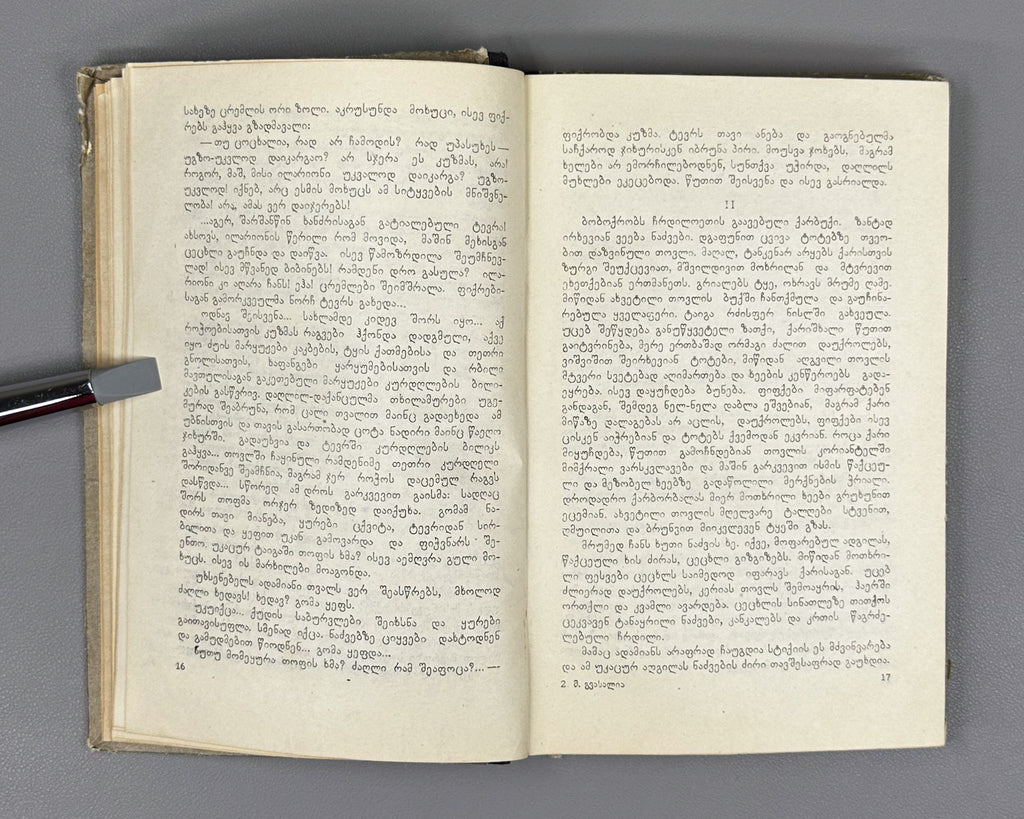 სახეზე ცრემლის ორი ზოლი. აკრუსუნდა მოხუცი, ისევ ფიქ-
რებს გაჰყვა გზადმავალი:
— თუ ცოცხალია, რად არ ჩამოდის? რად უპასუხეს —
უგზო-უკვლოდ დაიკარგაო? არ სჯერა ეს კუზმას, არა!
როგორ, მაშ, მისი ილარიონი უკვალოდ დაიკარგა? უგზო-
უკვლოდ! იქნებ, არც ესმის მოხუცს ამ სიტყვების მნიშვნე-
ლობა! არა, ამას ვერ დაიჯერებს!
...აგერ, შარშანწინ ხანძრისაგან გატიალებული ტევრა!
ახსოვს, ილარიონის წერილი რომ მოვიდა, მაშინ მეხისგან
ცეცხლი გაუჩნდა და დაიწვა. ისევ წამოზრდილა შეუმჩნევ-
ლად! ისევ მწვანედ ბიბინებს! რამდენი დრო გასულა? ილა-
რიონი კი აღარა ჩანს! ეჰა! ცრემლები შეიმშრალა. ფიქრები-
საგან გამორკვეულმა ნორჩ ტევრს გახედა...
ოდნავ შეისვენა... სახლამდე კიდევ შორს იყო... აქ
როჭოებისათვის კუზმას რაგვები ჰქონდა დადგმული, აქვე
იყო ძუის მარყუჟები კაკბების, ტყის ქათმებისა და თეთრი
გნოლისათვის. ხაფანგები ყარყუმებისათვის და რბილი
მავთულისაგან გაკეთებული მარყუჟები კურდღლების ბილი-
კების გასწვრივ. დაღლილ-დაქანცულმა თხილამურები უგე-
მურად შეაბრუნა, რომ ცალი თვალით მაინც გადაეხედა ამ
უბნისთვის და თავის გასართობად ცოტა ნადირი მაინც წაეღო
ჯიხურში. გადაუხვია და ტევრში კურდღლების ბილიკს
გაჰყვა... თოვლში ჩაყინული რამდენიმე თეთრი კურდღელი
შორიდანვე შეამჩნია, მაგრამ ჯერ როჭოს დაცემულ რაგვს
დასწვდა... სწორედ ამ დროს გარკვევით გაისმა: სადღაც
შორს თოფმა ორჯერ ზედიზედ დაიქუხა. გომამ ნა-
დირს თავი მიანება, ყურები ცქვიტა, ტევრიდან სირ-
ბილითა და ყეფით უკან გამოვარდა და ფიჭვნარს შე-
ენთო. უკაცურ ტაიგაში თოფის ხმა? ისევ აემღვრა გული მო-
ხუცს. ისევ ის მარხილები მოაგონდა.
უხსენებელს ადამიანი თვალს ვერ შეასწრებს, მხოლოდ
ძაღლი ხედავს! ხედავ? გომა ყეფს.
უკუიქცა... ქუდის საბურვლები შეიხსნა და ყურები
გაითავისუფლა. სმენად იქცა. ნაძვებზე ციყვები დახტოდნენ
და გამუდმებით წიოდნენ... გომა ყეფდა...
ნუთუ მომეყურა თოფის ხმა? ძაღლი რამ შეაფოცა?... —
16
ფიქრობდა კუზმა. ტევრს თავი ანება და გაოგნებულმა
საჩქაროდ ჯიხურისკენ იბრუნა პირი. მოუსვა ჯოხებს. მაგრამ
ხელები არ ემორჩილებოდნენ, სუნთქვა უჭირდა, დაღლილს
მუხლები ეკეცებოდა. წუთით შეისვენა და ისევ გასრიალდა.
II
ბობოქრობს ჩრდილოეთის გაავებული ქარბუქი. ზანტად
ირხევიან ვეება ნაძვები. დგაფუნით ცვივა ტოტებზე თვეო-
ბით დაზვინული თოვლი. მაღალ, ტანკენარ არყებს ქარისთვის
ზურგი შეუქცევიათ, მშვილდივით მოხრილან და მტვრევით
ეხეთქებიან ერთმანეთს. გრიალებს ტყე, ოხრავს მრუმე ღამე.
მიწიდან ახვეტილი თოვლის ბუქში ჩანთქმულა და გაუჩინა-
რებულა ყველაფერი. ტაიგა რძისფერ ნისლში გახვეულა.
უცებ შეწყდება განუწყვეტელი ზათქი, ქარიშხალი წუთით
გაიტვრინება, მერე ერთბაშად ორმაგი ძალით დაუქროლებს,
ვიშვიშით შეირხევიან ტოტები. მიწიდან აღგვილი თოვლის
მტვერი სვეტებად აღიმართება და ხეების კენწეროებს გადა-
ეყრება. ისევ დაყუჩდება ბუნება. ფიფქები მიფარფატებენ
განდაგან, შემდეგ ნელ-ნელა დაბლა ეშვებიან, მაგრამ ქარი
მიწაზე დალაგებას არ აცლის, დაუქროლებს, ფიფქები ისევ
ცისკენ აიჭრებიან და ტოტებს ქვემოდან ეკვრიან. როცა ქარი
მიყუჩდება, წუთით გამოჩნდებიან თოვლის კორიანტელში
მიმქრალი ვარსკვლავები და მაშინ გარკვევით ისმის წაქცეუ-
ლი და მეზობელ ხეებზე გადაწოლილი მერქნების ჭრიალი.
დროდადრო ქარბორბალას მიერ მოთხრილი ხეები გრუხუნით
ეცემიან. ახვეტილი თოვლის მღელვარე ტალღები სტვენით,
ღმუილითა და ბრუნვით მიიკვლევენ ტყეში გზას.
მრუმედ ჩანს ხუთი ნაძვის ხე. იქვე, მოფარებულ ადგილას,
წაქცეული ხის ძირას, ცეცხლი გიზგიზებს. მიწიდან მოთხრი-
ლი ფესვები ცეცხლს საიმედოდ იფარავს ქარისაგან. უცებ
ძლიერად დაუქროლებს, კერიას თოვლს შემოაყრის, ჰაერში
ორთქლი და კვამლი ავარდება. ცეცხლის სინათლეზე თითქოს
ცეკვავენ ტანაყრილი ნაძვები, კანკალებს და კრთის წაგრძე-
ლებული ჩრდილი.
მამაც ადამიანს არაფრად ჩაუგდია სტიქიის ეს მძვინვარება
და ამ უკაცურ ადგილას ნაძვების ძირი თავშესაფრად გაუხდია.
2 შ. გვასალია
17